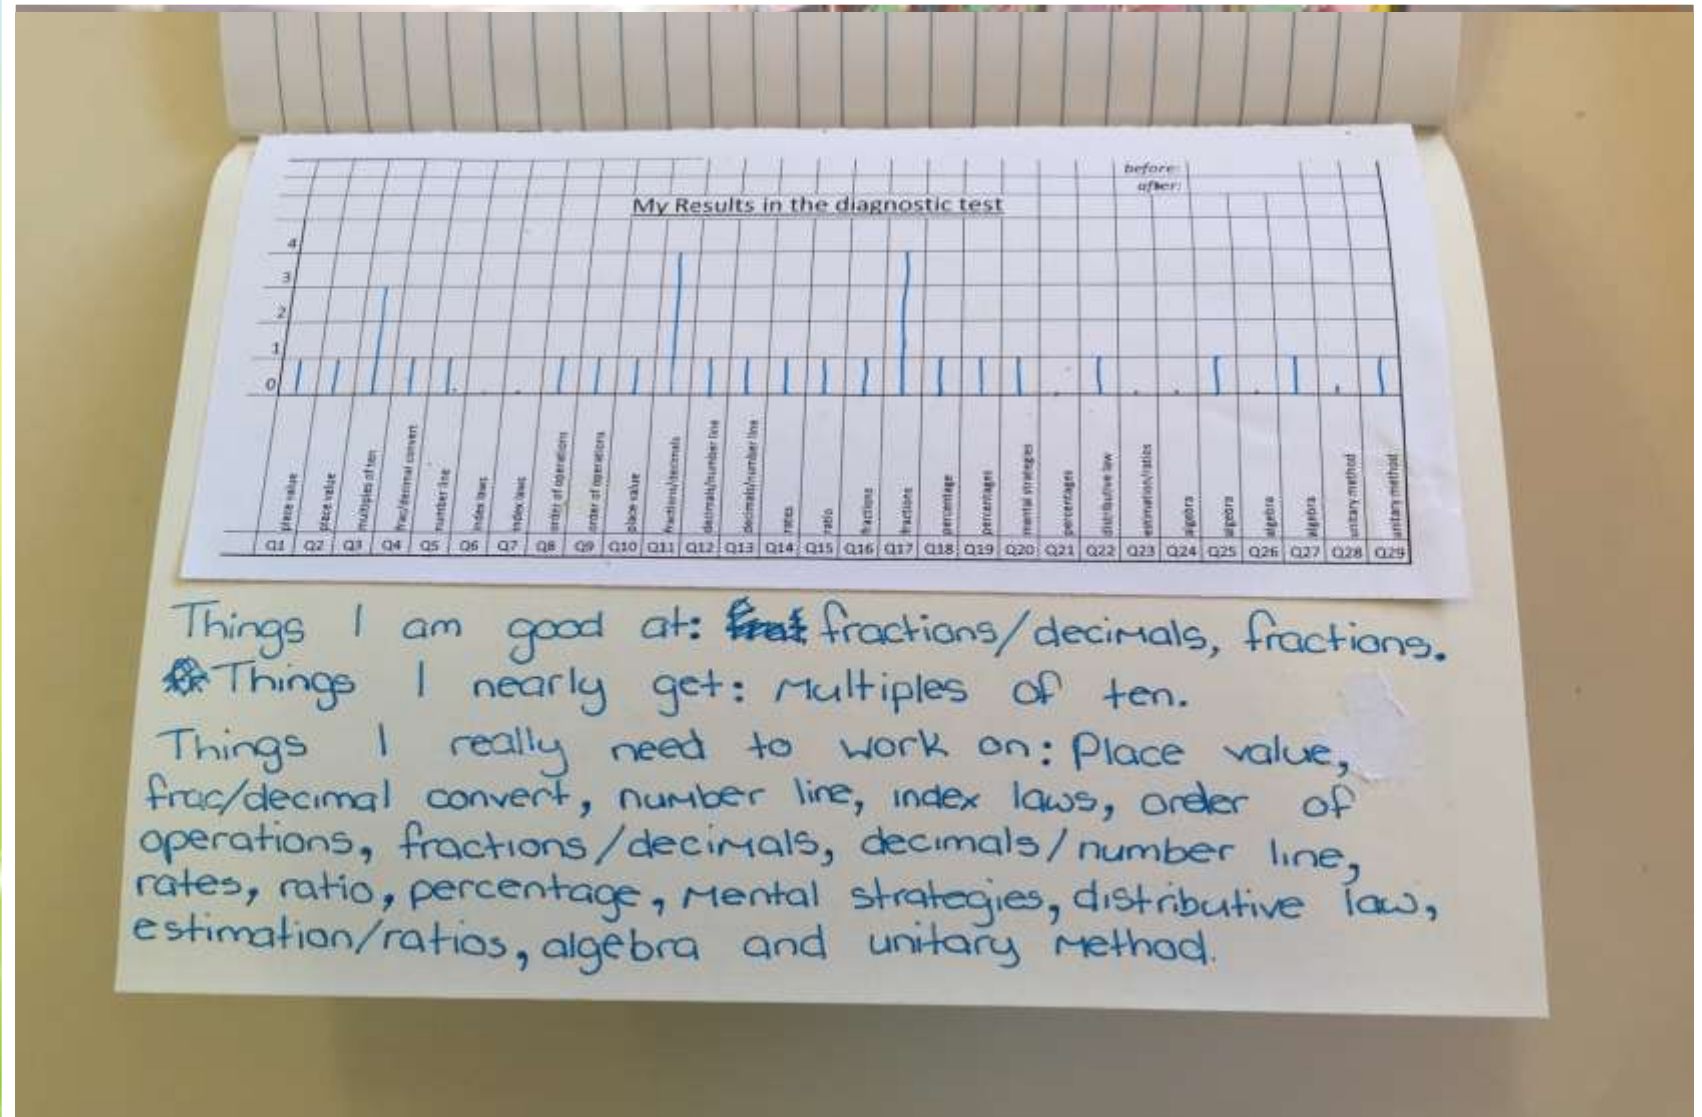 before:
after:
My Results in the diagnostic test
4
3
2
1
0
place value
place value
multiples of ten
frac/decimal convert
number line
index laws
index laws
order of operations
order of operations
place value
fractions/decimals
decimals/number line
decimals/number line
rates
ratio
fractions
fractions
percentage
percentages
mental strategies
percentages
distributive law
estimation/ratios
algebra
algebra
algebra
algebra
unitary method
unitary method
Q1 Q2 Q3 Q4 Q5 Q6 Q7 Q8 Q9 Q10 Q11 Q12 Q13 Q14 Q15 Q16 Q17 Q18 Q19 Q20 Q21 Q22 Q23 Q24 Q25 Q26 Q27 Q28 Q29
Things I am good at: fractions/decimals, fractions.
Things I nearly get: Multiples of ten.
Things I really need to work on: Place value,
frac/decimal convert, number line, index laws, order of
operations, fractions/decimals, decimals/number line,
rates, ratio, percentage, mental strategies, distributive law,
estimation/ratios, algebra and unitary method.